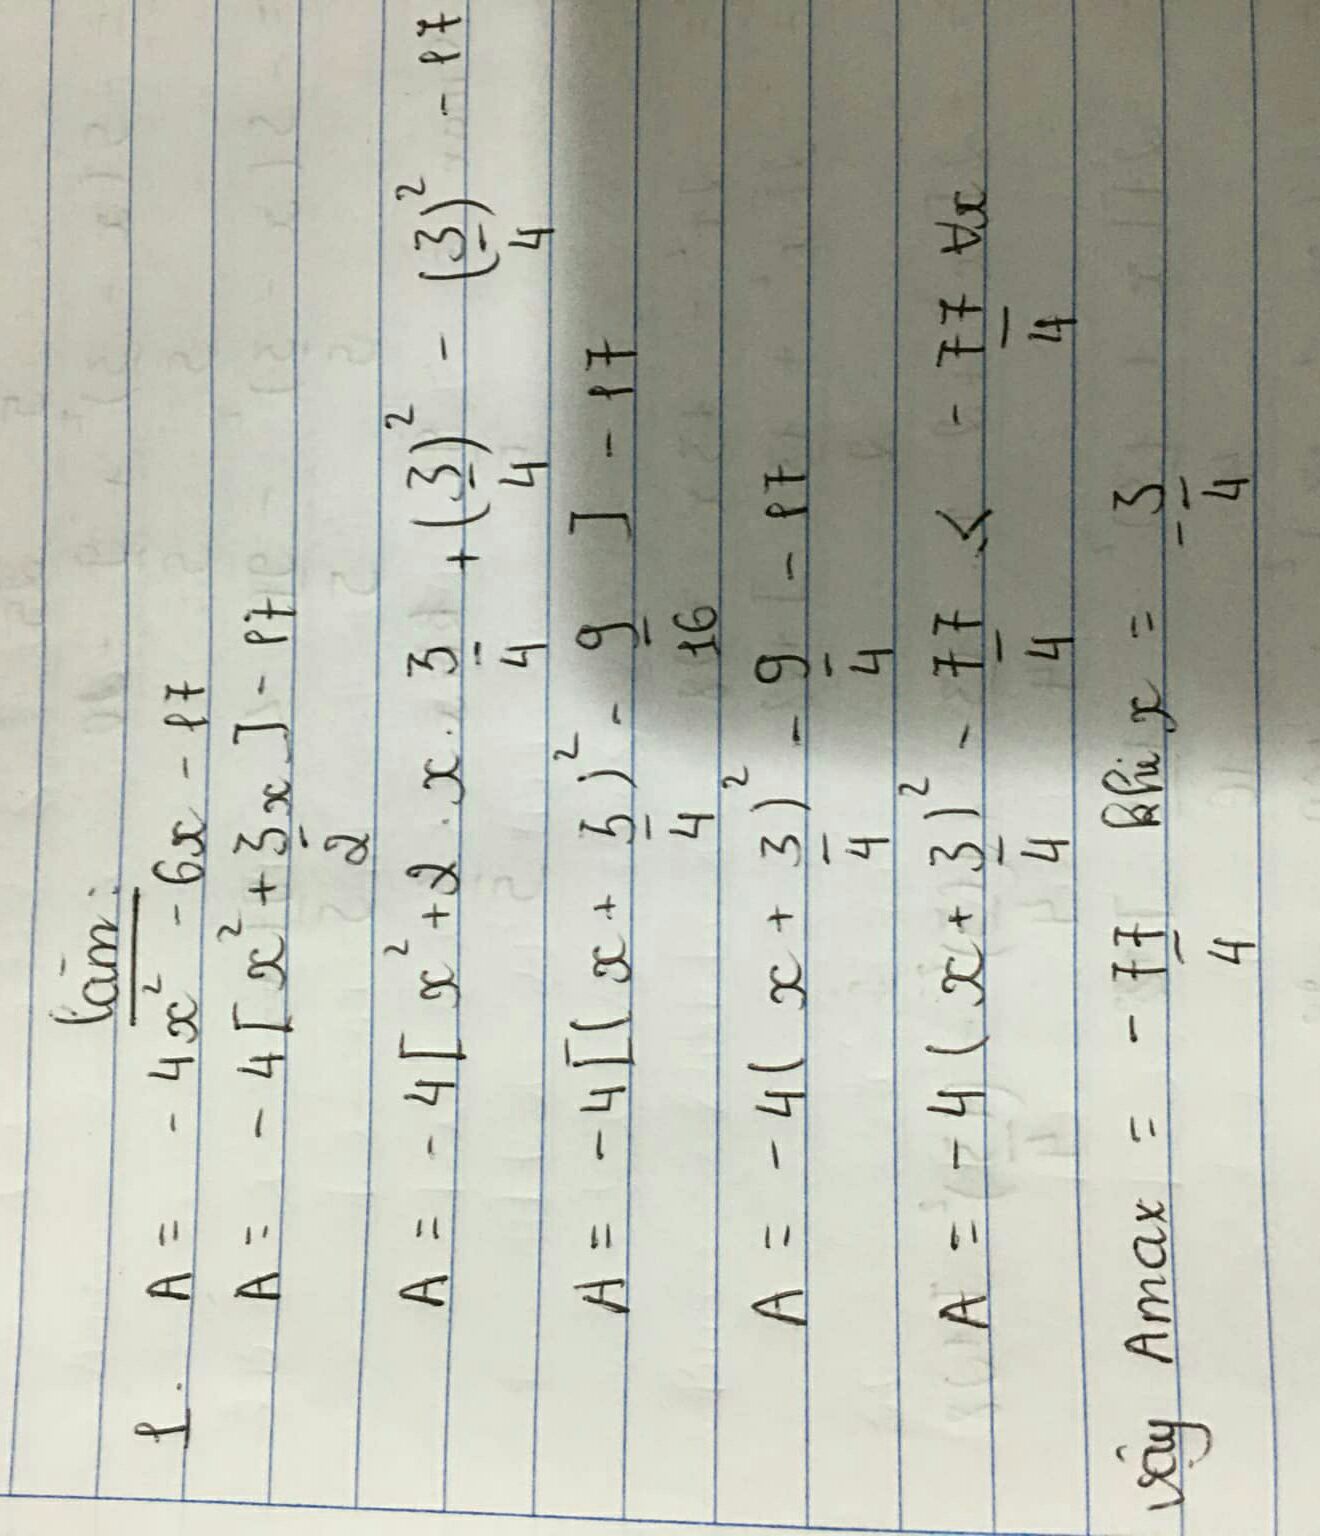 làm:
1. A = - 4x² - 6x - 17
A = - 4[x² + 3/2x] - 17
A = - 4[x² + 2.x.3/4 + (3/4)² - (3/4)² - 17
A = - 4[(x + 3/4)² - 9/16] - 17
A = - 4(x + 3/4)² - 9/4 - 17
A = - 4(x + 3/4)² - 77/4 ≤ - 77/4 ∀x
vậy Amax = - 77/4 khi x = - 3/4